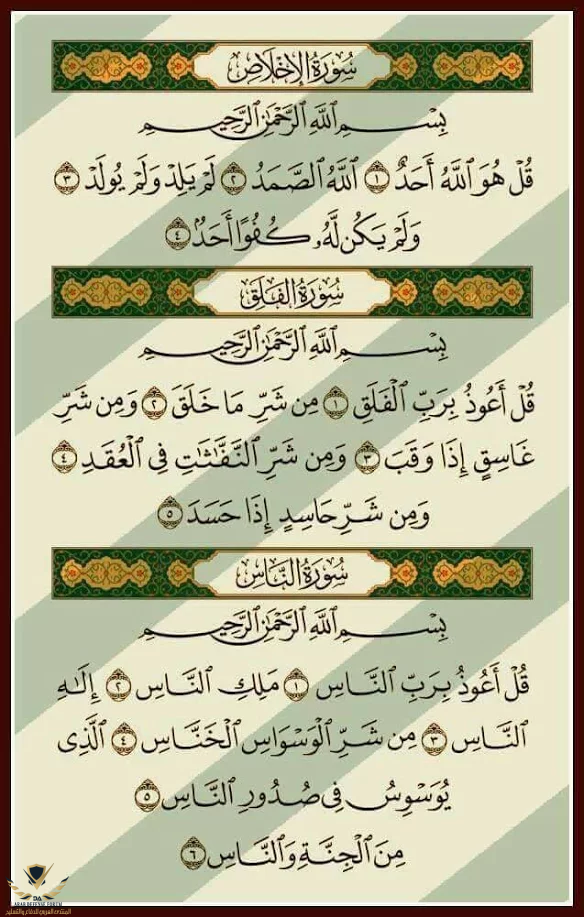 سُورَةُ الإِخْلَاصِ
بِسْمِ ٱللَّهِ ٱلرَّحْمَٰنِ ٱلرَّحِيمِ
قُلْ هُوَ ٱللَّهُ أَحَدٌ ١ ٱللَّهُ ٱلصَّمَدُ ٢ لَمْ يَلِدْ وَلَمْ يُولَدْ ٣
وَلَمْ يَكُن لَّهُۥ كُفُوًا أَحَدٌۢ ٤
سُورَةُ الفَلَقِ
بِسْمِ ٱللَّهِ ٱلرَّحْمَٰنِ ٱلرَّحِيمِ
قُلْ أَعُوذُ بِرَبِّ ٱلْفَلَقِ ١ مِن شَرِّ مَا خَلَقَ ٢ وَمِن شَرِّ
غَاسِقٍ إِذَا وَقَبَ ٣ وَمِن شَرِّ ٱلنَّفَّٰثَٰتِ فِى ٱلْعُقَدِ ٤
وَمِن شَرِّ حَاسِدٍ إِذَا حَسَدَ ٥
سُورَةُ النَّاسِ
بِسْمِ ٱللَّهِ ٱلرَّحْمَٰنِ ٱلرَّحِيمِ
قُلْ أَعُوذُ بِرَبِّ ٱلنَّاسِ ١ مَلِكِ ٱلنَّاسِ ٢ إِلَٰهِ
ٱلنَّاسِ ٣ مِن شَرِّ ٱلْوَسْوَاسِ ٱلْخَنَّاسِ ٤ ٱلَّذِى
يُوَسْوِسُ فِى صُدُورِ ٱلنَّاسِ ٥
مِنَ ٱلْجِنَّةِ وَٱلنَّاسِ ٦
DA
ARAB DEFENSE FORUM
المنتدى العربي للدفاع والتسليح